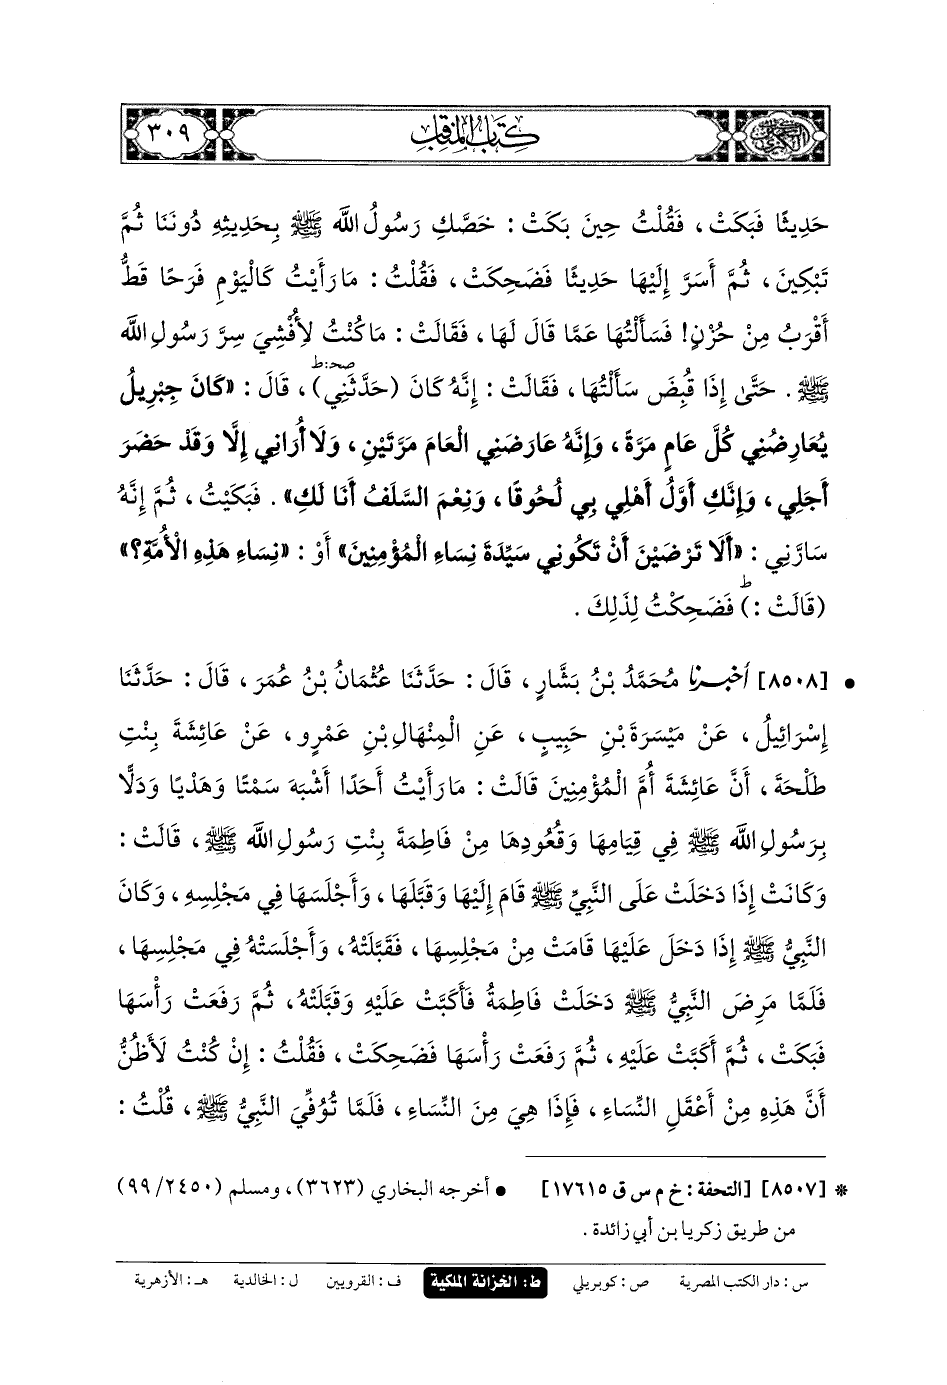 كتاب المناقب
٣٠٩
حَدِيثًا فَبَكَتْ، فَقُلْتُ حِينَ بَكَتْ: خَصَّكِ رَسُولُ اللَّه ﷺ بِحَدِيثِهِ دُونَنَا ثُمَّ
تَبْكِينَ، ثُمَّ أَسَرَّ إِلَيْهَا حَدِيثًا فَضَحِكَتْ، فَقُلْتُ: مَا رَأَيْتُ كَالْيَوْمِ فَرَحًا قَطُّ
أَقْرَبُ مِنْ حُزْنٍ! فَسَأَلْتُهَا عَمَّا قَالَ لَهَا، فَقَالَتْ: مَا كُنْتُ لِأُفْشِيَ سِرَّ رَسُولِ اللَّه
ﷺ. حَتَّى إِذَا قُبِضَ سَأَلْتُهَا، فَقَالَتْ: إِنَّهُ كَانَ (حَدَّثَنِي)صحـ:ط، قَالَ: «كَانَ جِبْرِيلُ
يُعَارِضُنِي كُلَّ عَامٍ مَرَّةً، وَإِنَّهُ عَارَضَنِي الْعَامَ مَرَّتَيْنِ، وَلَا أُرَانِي إِلَّا وَقَدْ حَضَرَ
أَجَلِي، وَإِنَّكِ أَوَّلُ أَهْلِي بِي لُحُوقًا، وَنِعْمَ السَّلَفُ أَنَا لَكِ». فَبَكَيْتُ، ثُمَّ إِنَّهُ
سَارَّنِي: «أَلَا تَرْضَيْنَ أَنْ تَكُونِي سَيِّدَةَ نِسَاءِ الْمُؤْمِنِينَ» أَوْ: «نِسَاءِ هَذِهِ الْأُمَّةِ؟»
(قَالَتْ:)ط فَضَحِكْتُ لِذَلِكَ.
• [٨٥٠٨] أخبرنا مُحَمَّدُ بْنُ بَشَّارٍ، قَالَ: حَدَّثَنَا عُثْمَانُ بْنُ عُمَرَ، قَالَ: حَدَّثَنَا
إِسْرَائِيلُ، عَنْ مَيْسَرَةَ بْنِ حَبِيبٍ، عَنِ الْمِنْهَالِ بْنِ عَمْرٍو، عَنْ عَائِشَةَ بِنْتِ
طَلْحَةَ، أَنَّ عَائِشَةَ أُمَّ الْمُؤْمِنِينَ قَالَتْ: مَا رَأَيْتُ أَحَدًا أَشْبَهَ سَمْتًا وَهَدْيًا وَدَلًّا
بِرَسُولِ اللَّه ﷺ فِي قِيَامِهَا وَقُعُودِهَا مِنْ فَاطِمَةَ بِنْتِ رَسُولِ اللَّه ﷺ، قَالَتْ:
وَكَانَتْ إِذَا دَخَلَتْ عَلَى النَّبِيِّ ﷺ قَامَ إِلَيْهَا وَقَبَّلَهَا، وَأَجْلَسَهَا فِي مَجْلِسِهِ، وَكَانَ
النَّبِيُّ ﷺ إِذَا دَخَلَ عَلَيْهَا قَامَتْ مِنْ مَجْلِسِهَا، فَقَبَّلَتْهُ، وَأَجْلَسَتْهُ فِي مَجْلِسِهَا،
فَلَمَّا مَرِضَ النَّبِيُّ ﷺ دَخَلَتْ فَاطِمَةُ فَأَكَبَّتْ عَلَيْهِ وَقَبَّلَتْهُ، ثُمَّ رَفَعَتْ رَأْسَهَا
فَبَكَتْ، ثُمَّ أَكَبَّتْ عَلَيْهِ، ثُمَّ رَفَعَتْ رَأْسَهَا فَضَحِكَتْ، فَقُلْتُ: إِنْ كُنْتُ لَأَظُنُّ
أَنَّ هَذِهِ مِنْ أَعْقَلِ النِّسَاءِ، فَإِذَا هِيَ مِنَ النِّسَاءِ، فَلَمَّا تُوُفِّيَ النَّبِيُّ ﷺ، قُلْتُ:
* [٨٥٠٧] [التحفة: خ م س ق ١٧٦١٥] • أخرجه البخاري (٣٦٢٣)، ومسلم (٩٩/٢٤٥٠)
من طريق زكريا بن أبي زائدة.
س: دار الكتب المصرية ص: كوبريلي ط: الخزانة الملكية ف: القرويين ل: الخالدية هـ: الأزهرية